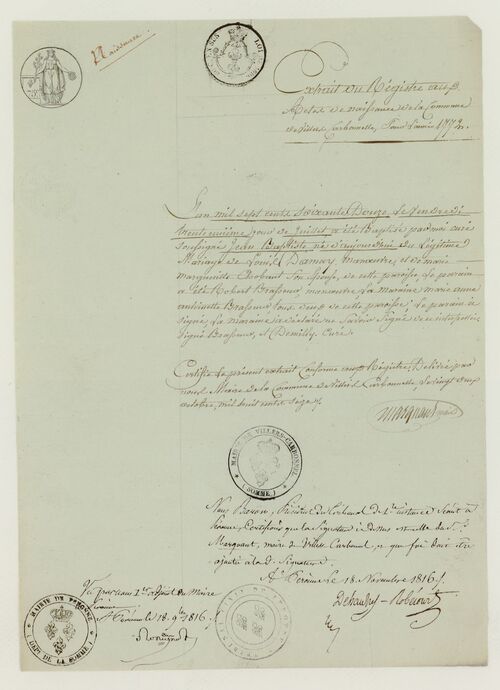 Naissance
LOI
Extrait du Régistre aux
Actes de naissance de la Commune
de Villers Carbonnelle, Pour l'année 1772.
L'an mil sept cent soixante Douze, le Vendredi
trente unième jour de Juillet, a été Baptisé par moi curé
soussigné Jean Baptiste né d'aujourd'hui du légitime
Mariage de Louis Damay manouvrier, et de marie
marguerite Chobant son épouse, de cette paroisse, le parain
a été Robert Brasseur, manouvrier la maraine marie anne
antoinette Brasseur tous deux de cette paroisse le parain à
signé, la maraine a déclaré ne savoir signé de ce interpellée
signé Brasseur, et Demilly, Curé.
Certifié le présent extrait Conforme aux Régistres, Délivré par
nous Maire de la Commune de Villers Carbonnelle, le vingt deux
octobre, mil huit cent seize.
Marquant maire
MAIRIE DE VILLERS-CARBONNEL
(SOMME)
Nous Baron, Président du tribunal de 1re instance séant à
Péronne, Certifions que la Signature ci dessus est celle du Sr.
Marquant, maire de Villers Carbonnel, et que foi doit être
ajoutée à la de. Signature
A Péronne le 18 Novembre 1816.
Vu par nous 1er adjoint du Maire
Péronne
A Péronne le 18 9bre 1816.
MAIRIE DE PÉRONNE
DEPT. DE LA SOMME